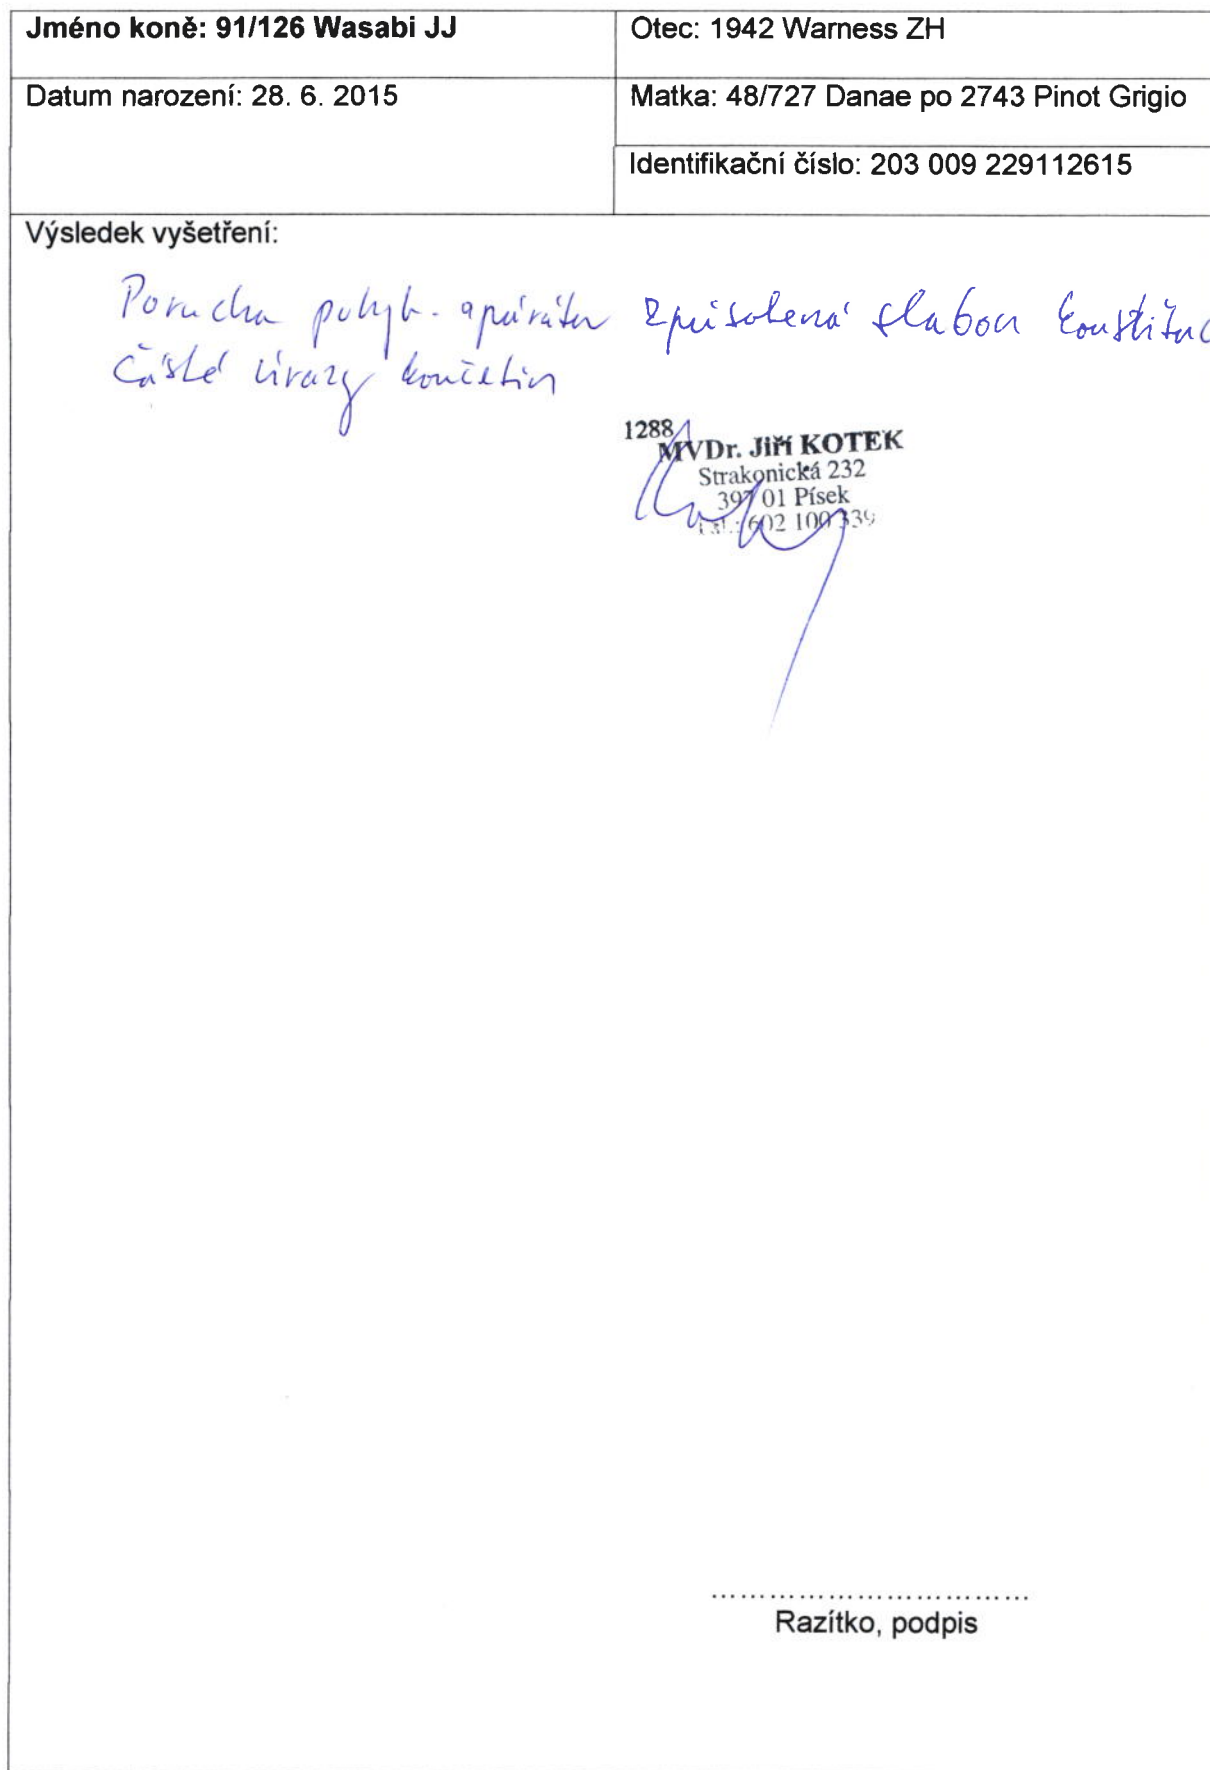 Jméno koně: 91/126 Wasabi JJ
Otec: 1942 Warness ZH
Datum narození: 28. 6. 2015
Matka: 48/727 Danae po 2743 Pinot Grigio
Identifikační číslo: 203 009 229112615
Výsledek vyšetření:
Porucha pohyb. aparátu způsobená slabou konstituc
Časté úrazy končetin
1288
MVDr. Jiří KOTEK
Strakonická 232
397 01 Písek
Tel.: 602 100 339
Razítko, podpis